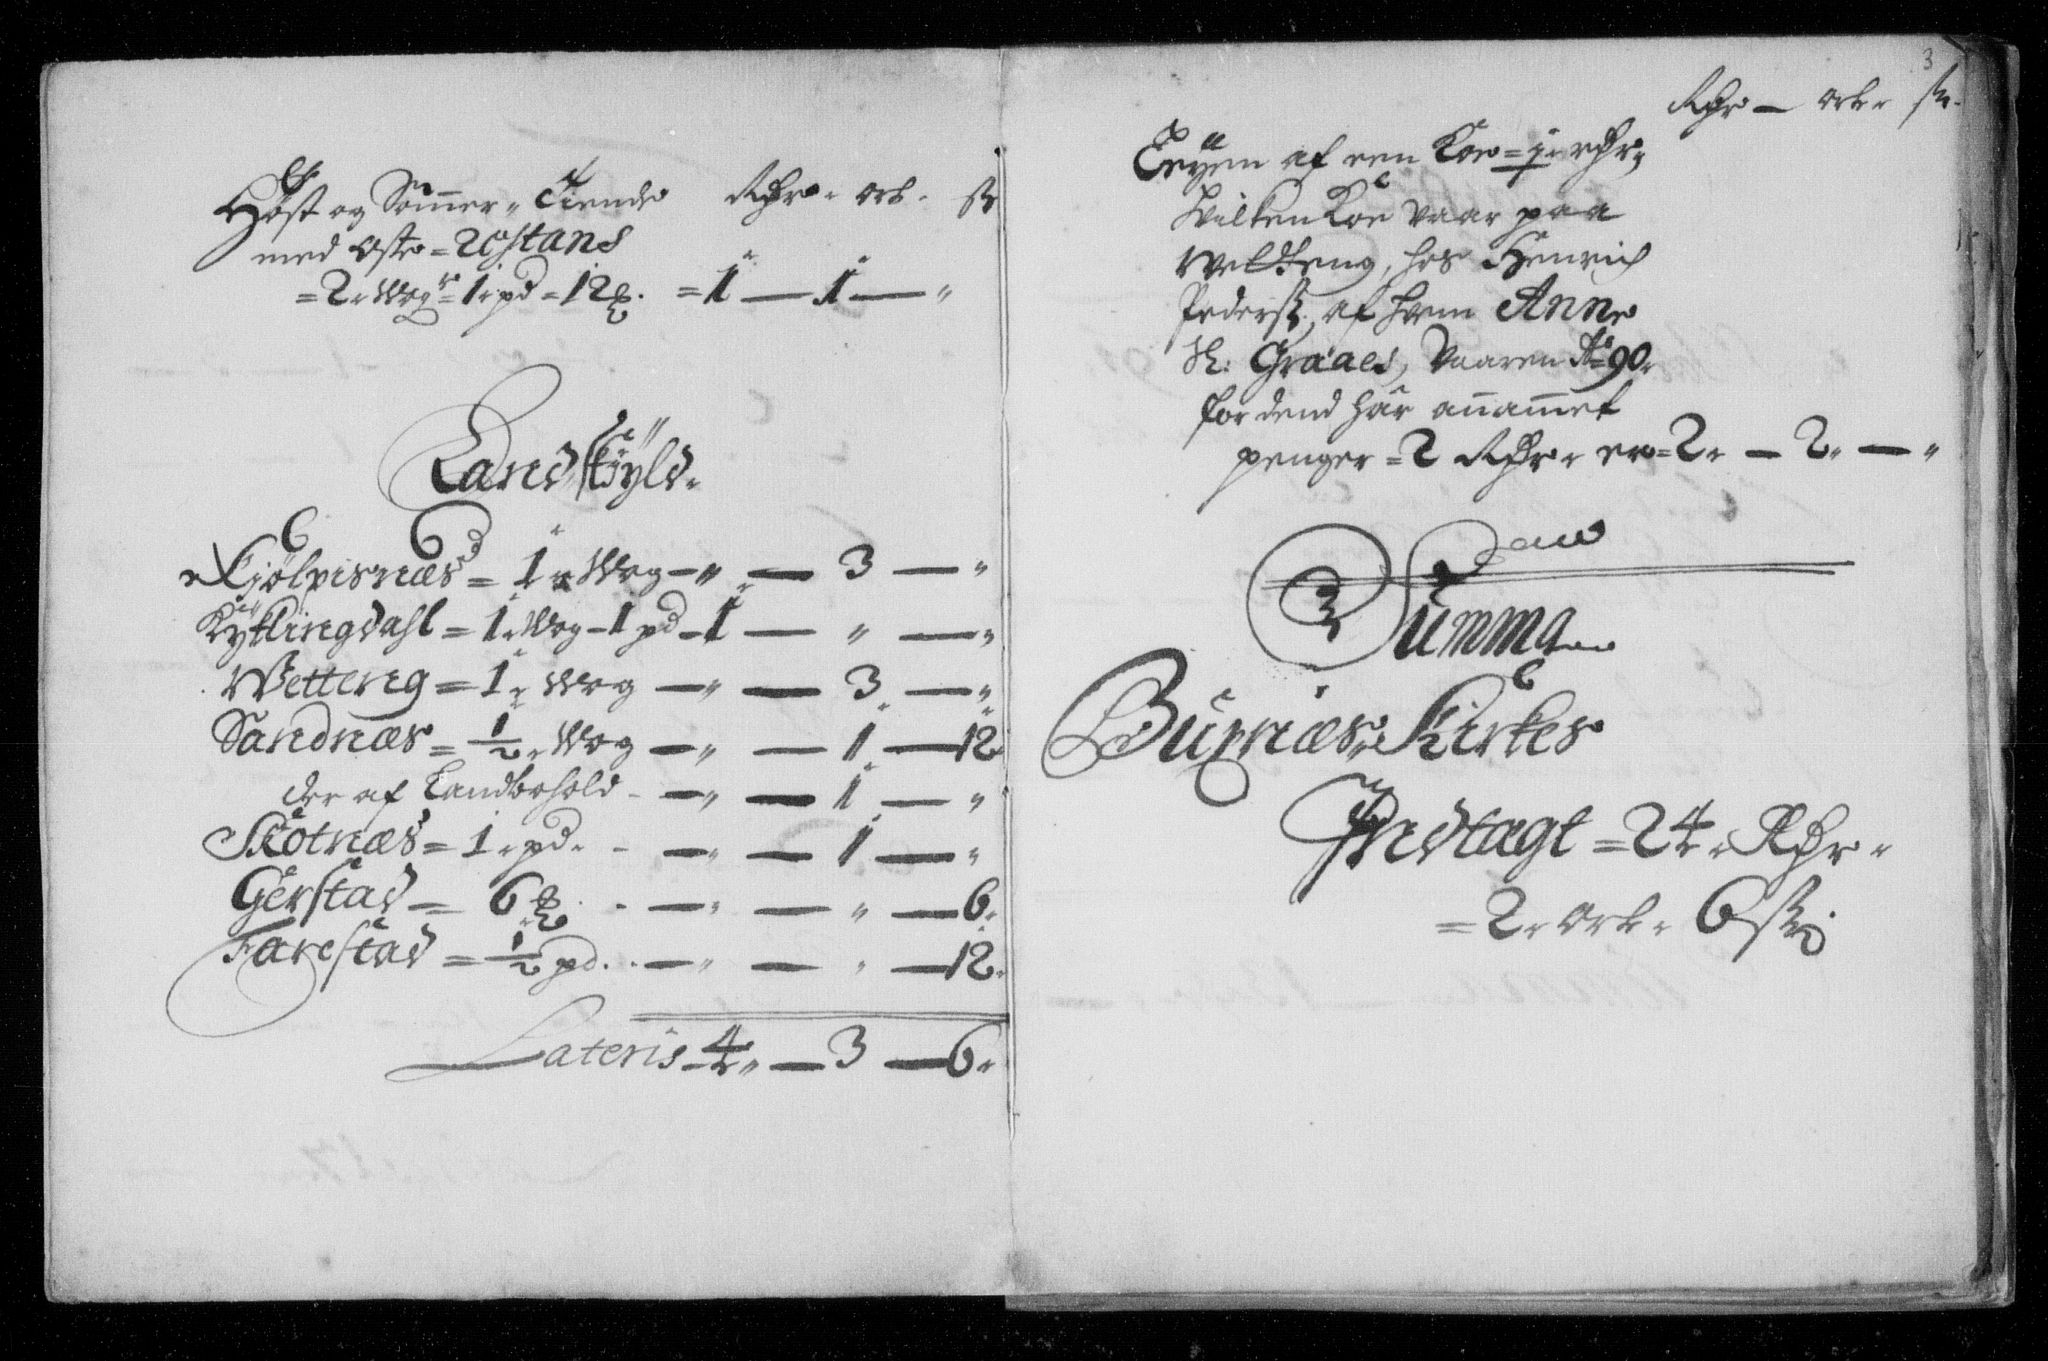 Høst og Sommer„ Tiende Rdr„ ort„ s
med Oste =
=2„ Wog =1„ pd =12 =1 — 1 — „
Landskÿld„
Kiølpisnæs = 1„ Wog — „ — 3 — „
Kÿtlingdahl = 1„ Wog — 1 pd — 1 — „ — „
Wetteng = 1„ Wog — „ — 3 — „
Sandnæs = ½„ Wog — „ — 1 — 12
der af Landbohold — „ — 1 — „
Skotnæs = 1„ pd„ — „ — 1 — „
Gerstad = 6 — „ — „ — 6„
Farestad = ½ pd. — „ — „ — 12„
Lateris 4„ — 3 — 6„
3
Rdr — ort„ s
Leÿen af een Koe = 1 rdr,
hvilken Koe vaar paa
Wetteng, hos Henrich
Peders, af hvem Anne
Sl: Graaes, Vaaren Aº 90„
for dend har anammet
penger = 2 Rdr„ er = 2„ — 2„ — „
Summa
Buxnæs Kirkes
Indtægt = 24„ Rdr„
= 2„ ort„ 6 s